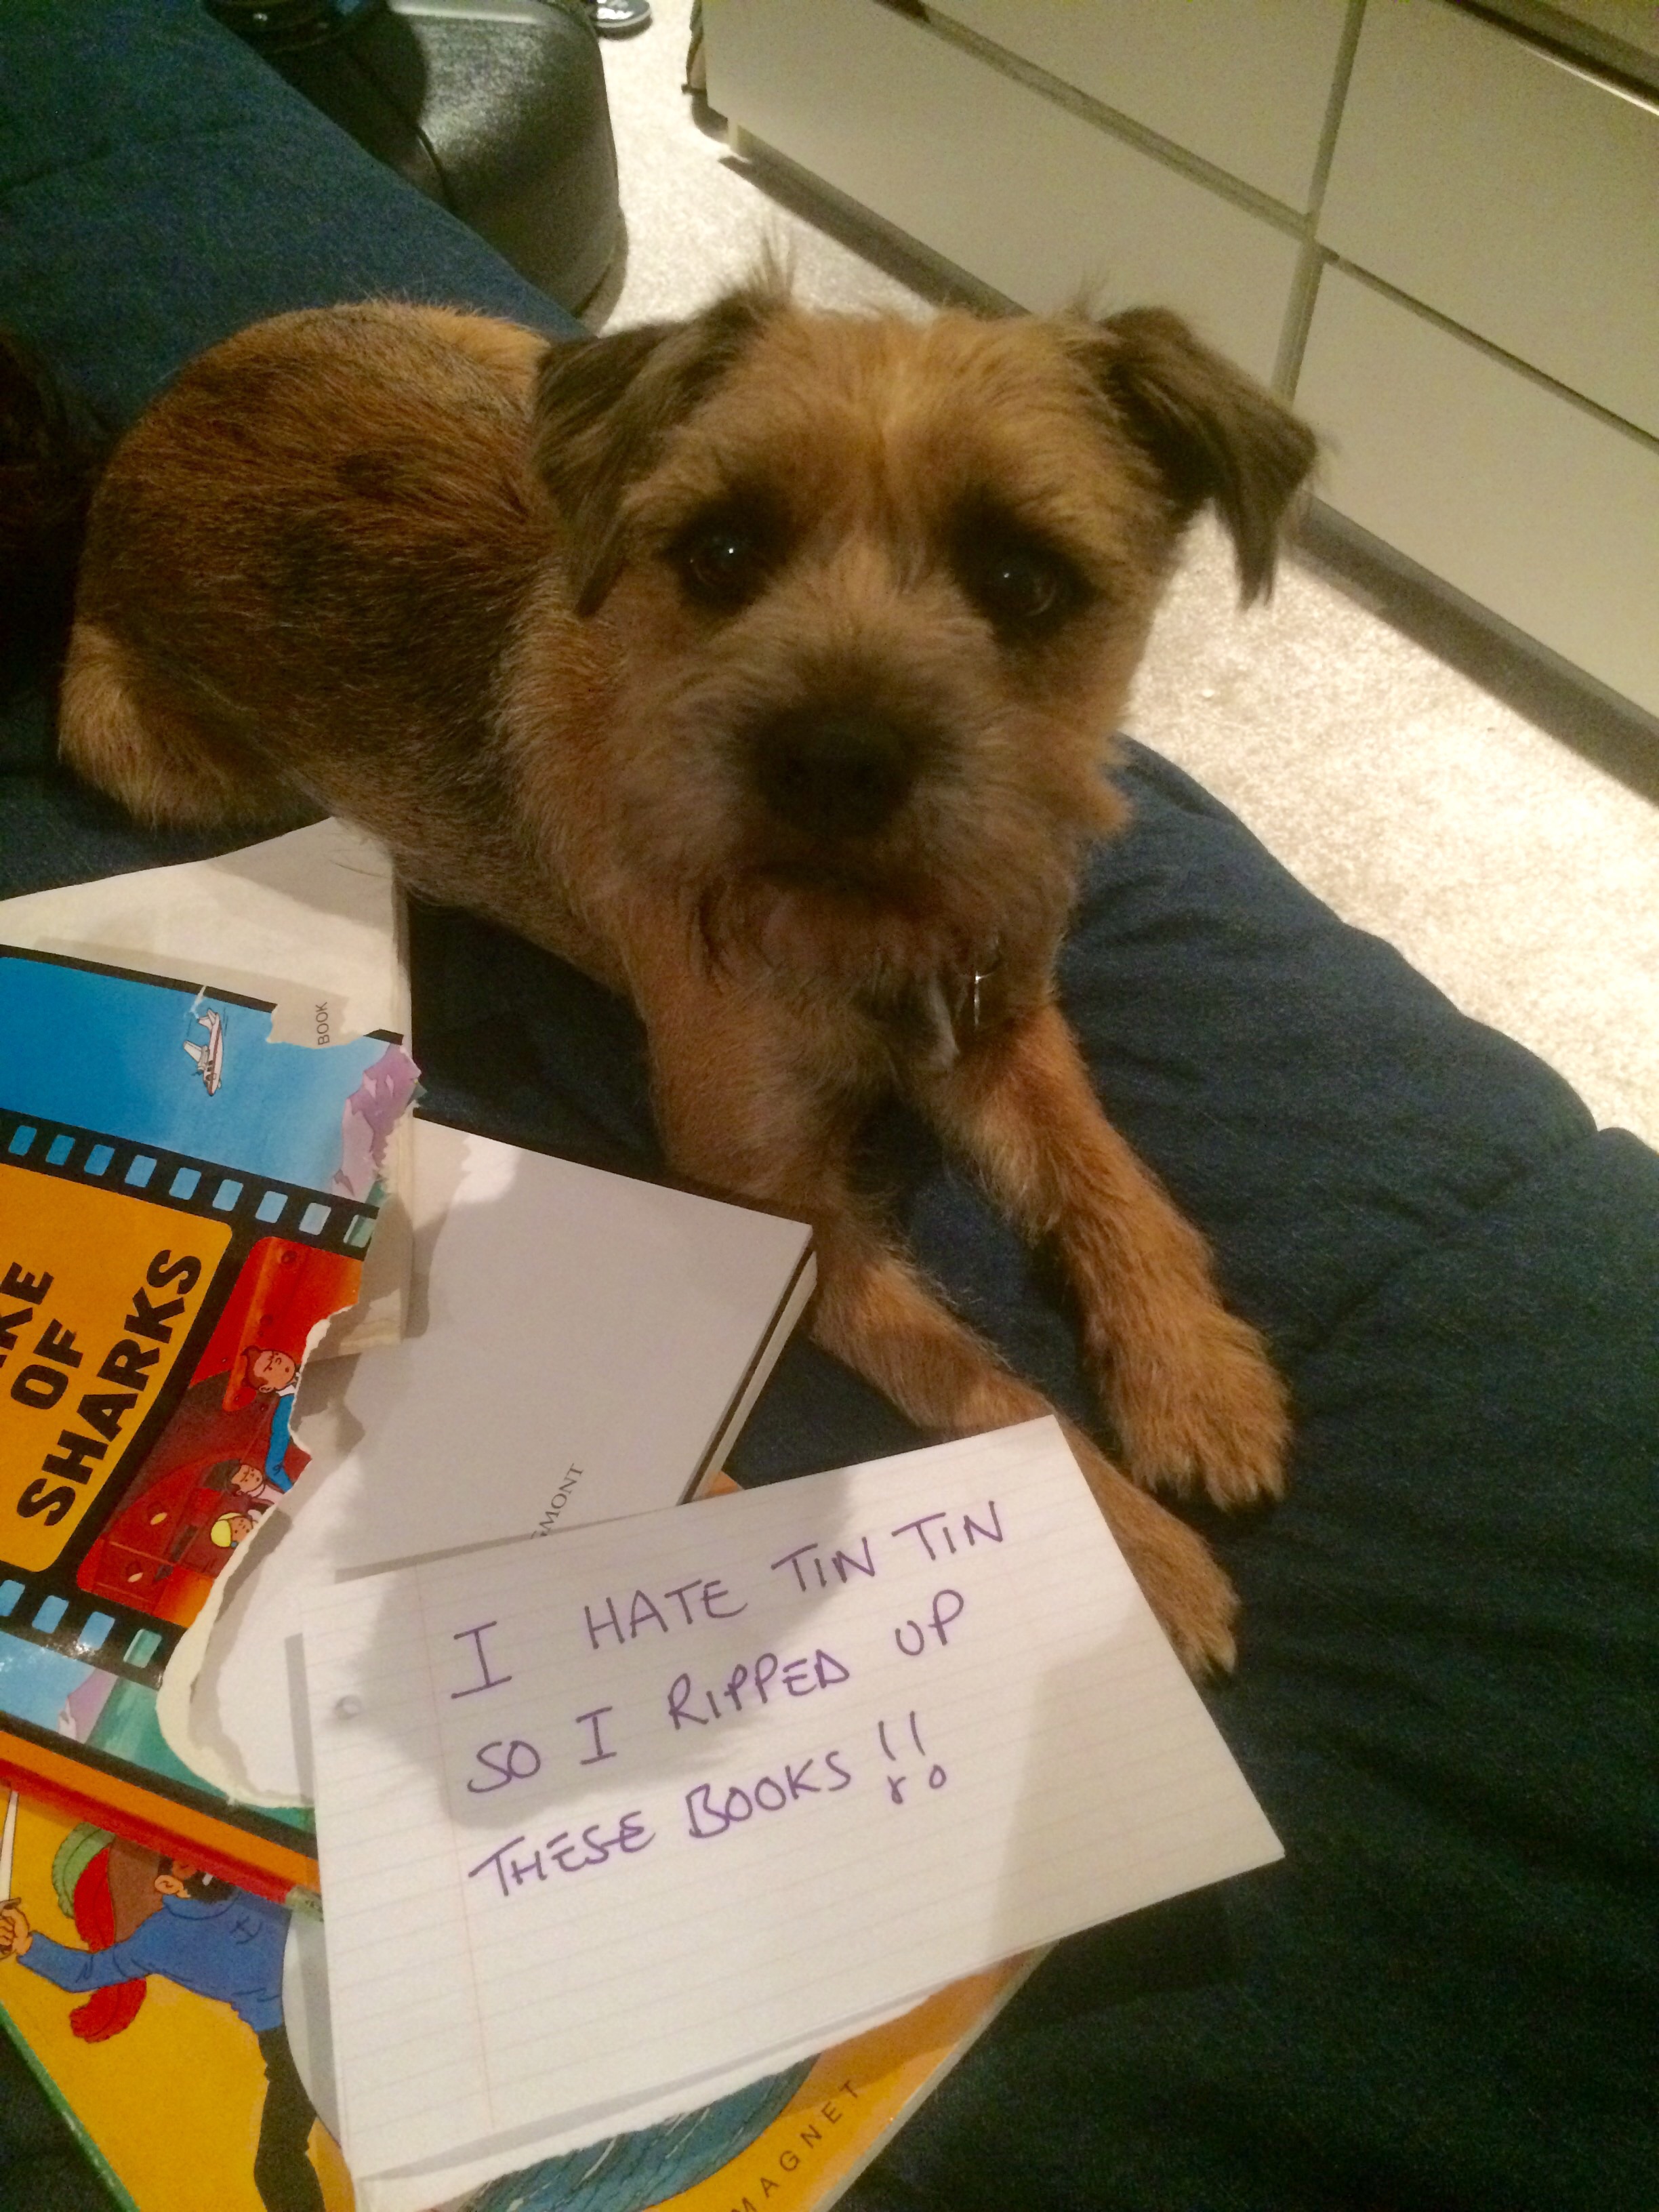 BOOK
KE
OF
SHARKS
GMONT
I HATE TIN TIN
SO I RIPPED UP
THESE BOOKS!!
MAGNET